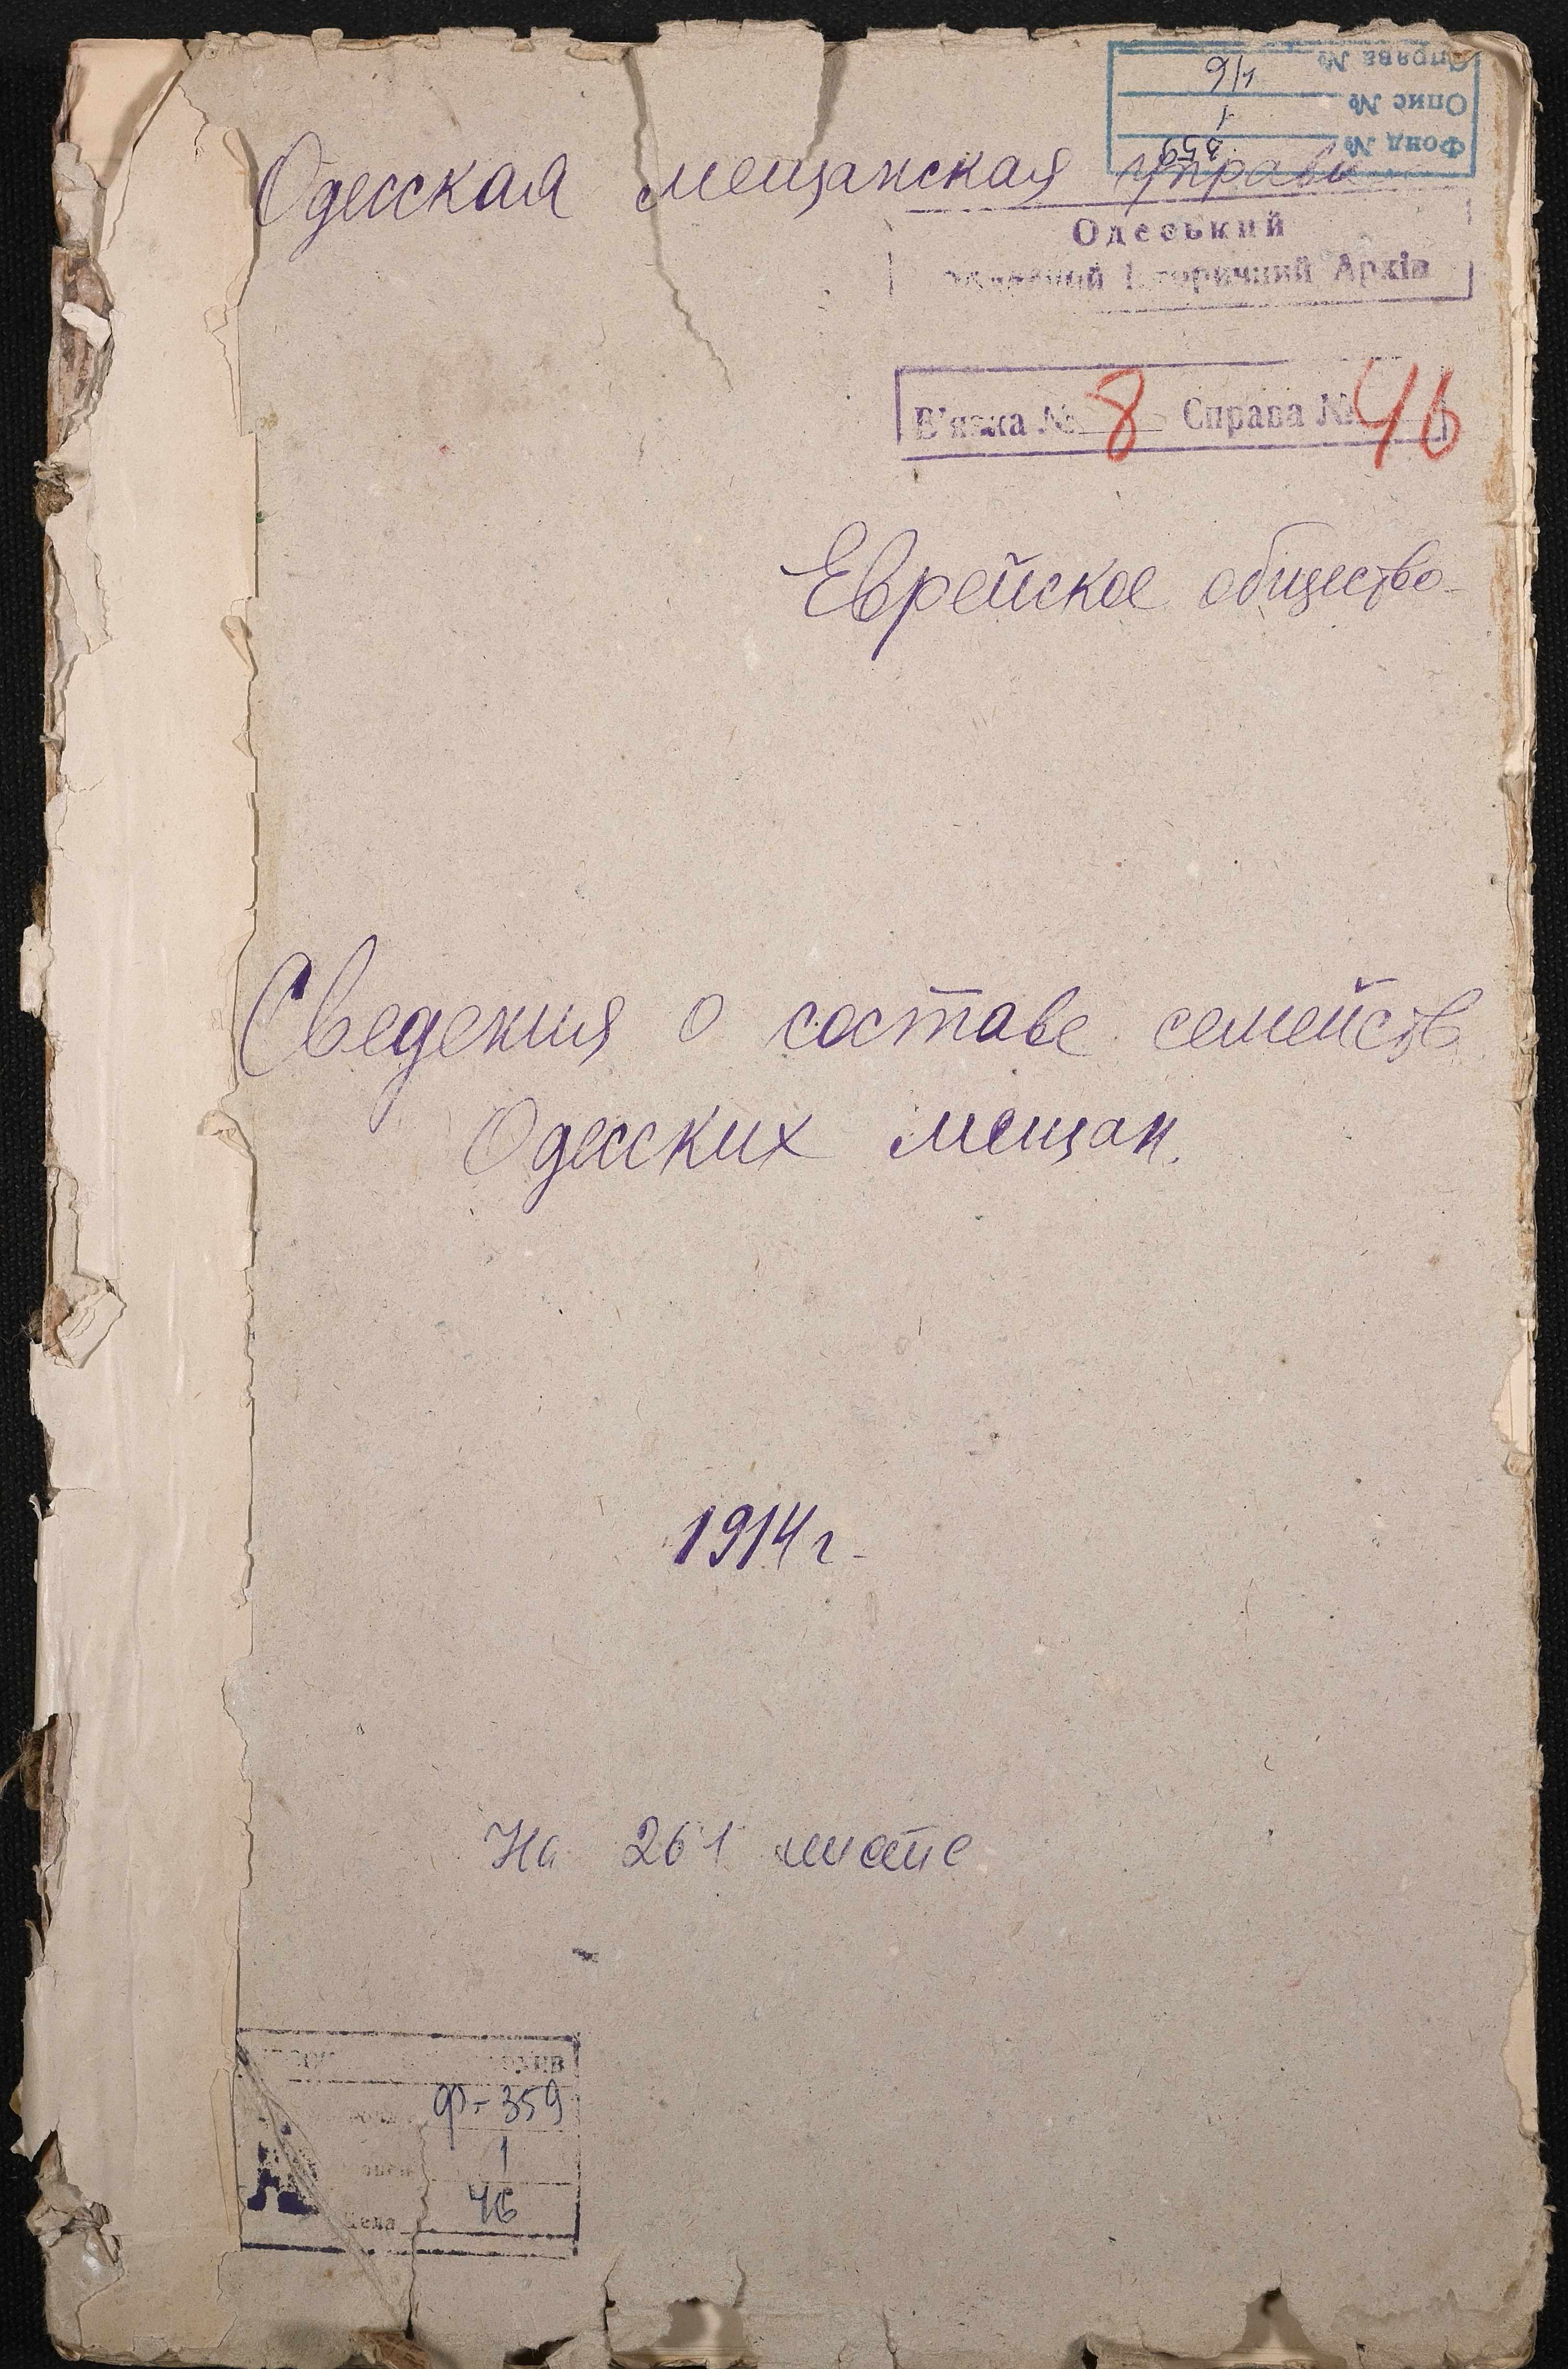 Справа № 46
Опис № 1
Фонд № 359
Одесская мещанская управа
Одеський
Історичний Архів
В'язка № 8 Справа № 46
Еврейское общество
Сведения о составе семейств
Одесских мещан.
1914 г.
На 261 листе
Ф-359
1
Дела 46